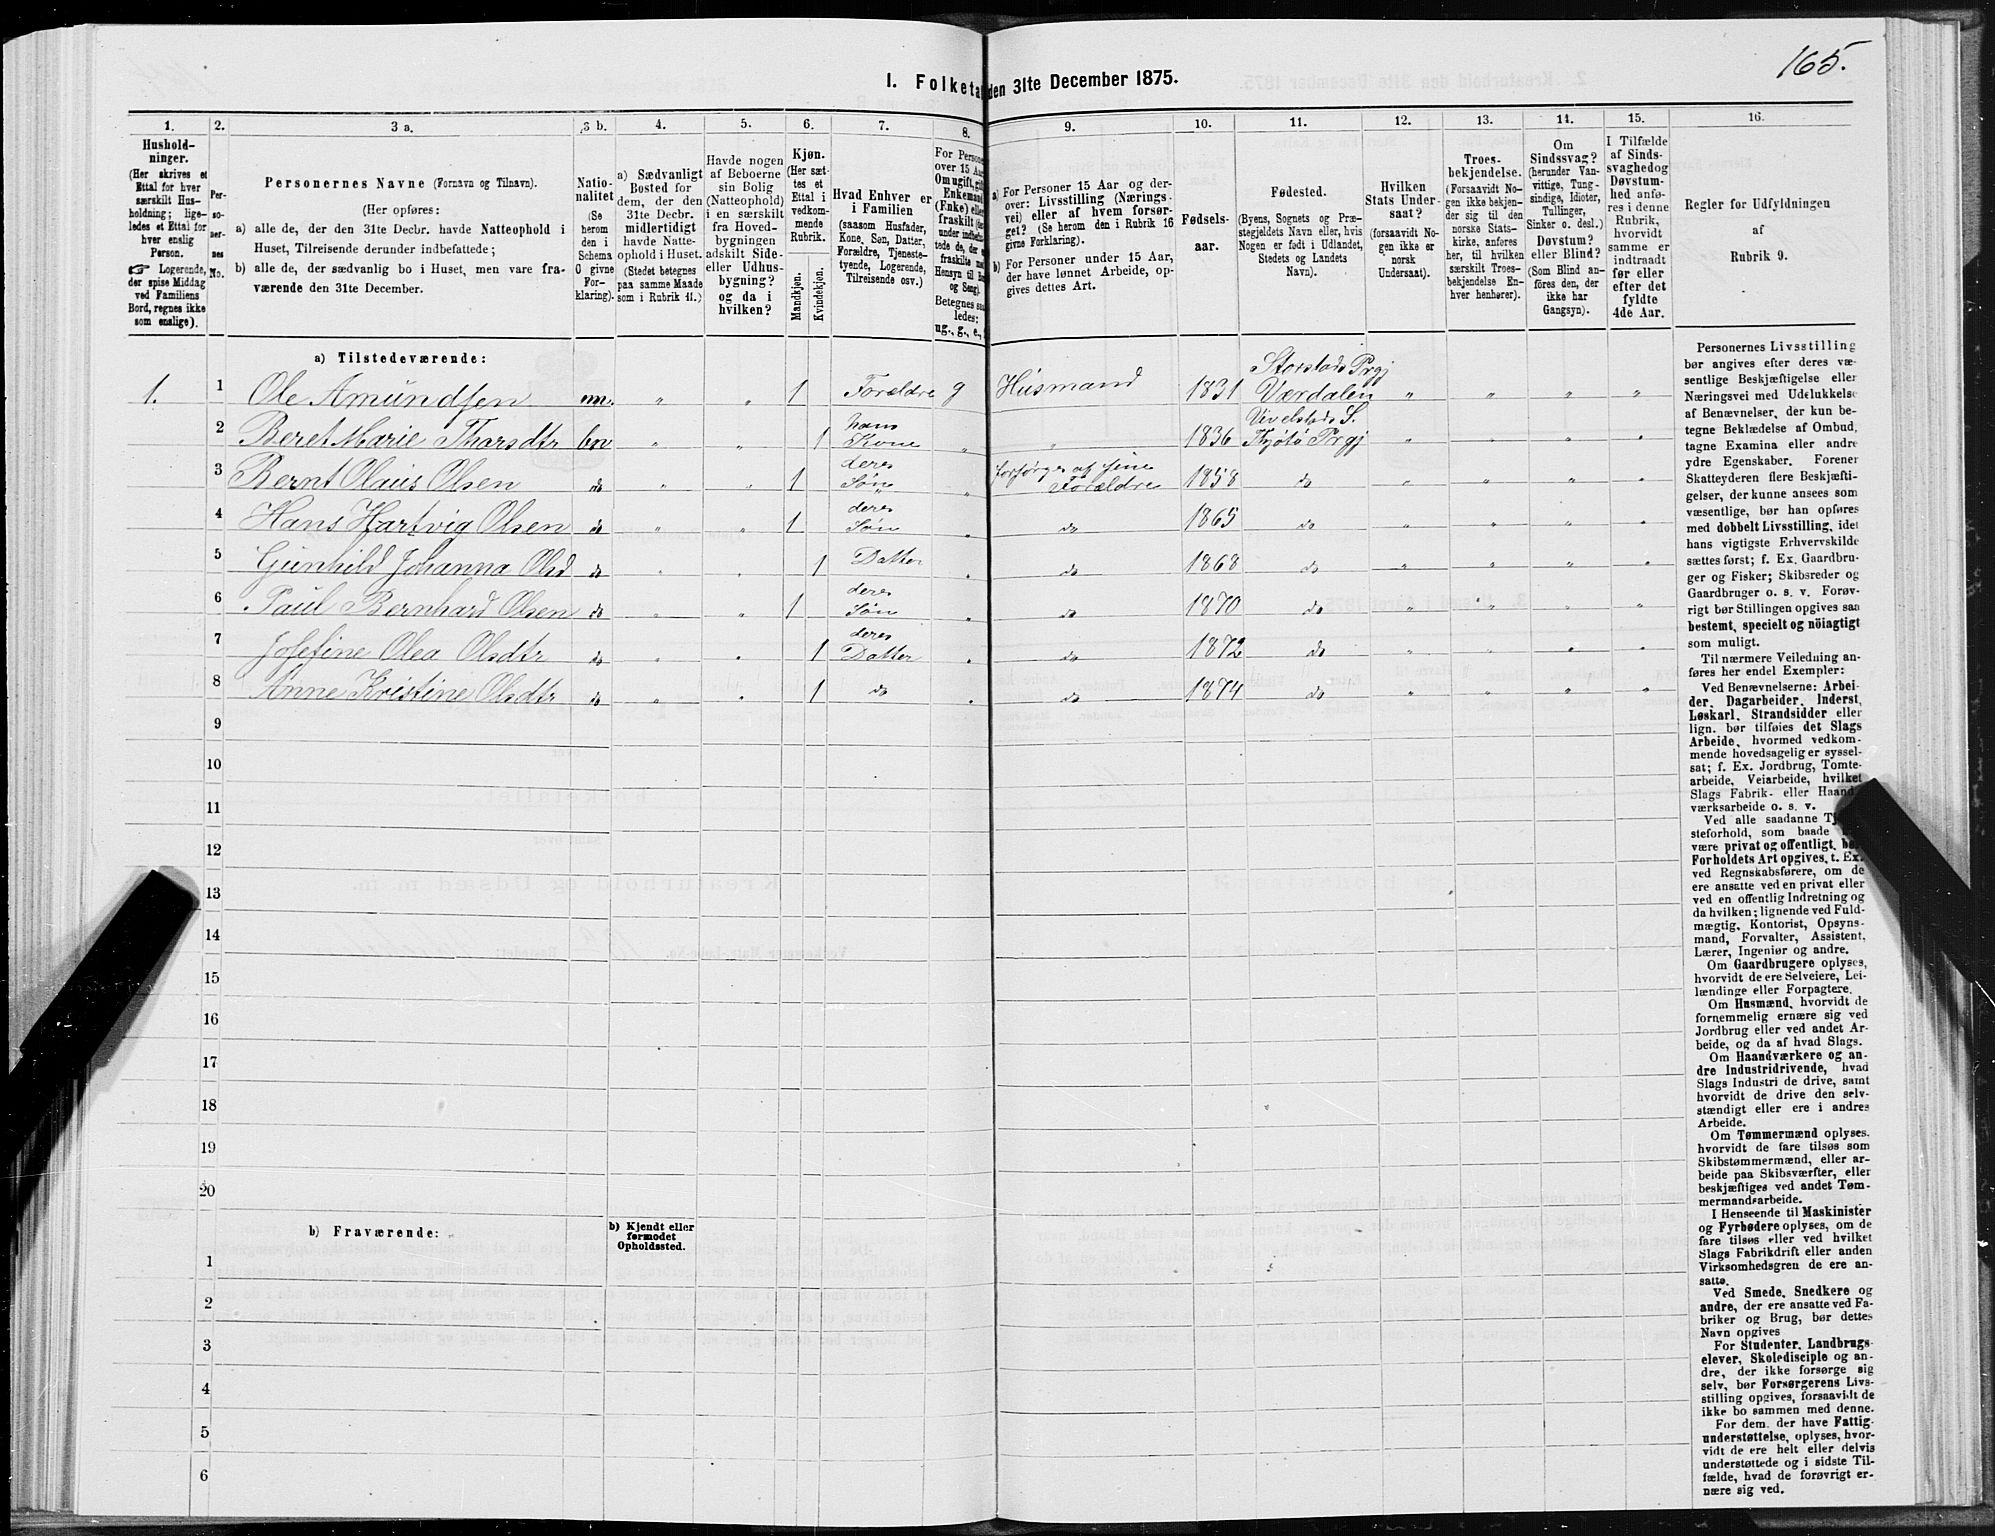 165.
I. Folketal den 31te December 1875.
1. 2. 3 a. 3 b. 4. 5. 6. 7. 8. 9. 10. 11. 12. 13. 14. 15. 16.
Hushold-
ninger.
(Her skrives et
Ettal for hver
særskilt Hus-
holdning; lige-
ledes et Ettal for
hver enslig
Person.
☞ Logerende,
der spise Middag
ved Familiens
Bord, regnes ikke
som enslige).
Per-
so-
ner-
nes
No.
Personernes Navne (Fornavn og Tilnavn).
(Her opføres:
a) alle de, der den 31te Decbr. havde Natteophold i
Huset, Tilreisende derunder indbefattede;
b) alle de, der sædvanlig bo i Huset, men vare fra-
værende den 31te December.
Natio-
nalitet
(Se
herom
den i
Schema
O givne
For-
klaring).
a) Sædvanligt
Bosted for
dem, der den
31te Decbr.
midlertidigt
havde Natte-
ophold i Huset.
(Stedet betegnes
paa samme Maade
som i Rubrik 11.)
Havde nogen
af Beboerne
sin Bolig
(Natteophold)
i en særskilt
fra Hoved-
bygningen
adskilt Side-
eller Udhus-
bygning?
og da i
hvilken?
Kjøn.
(Her sæt-
tes et
Ettal i
vedkom-
mende
Rubrik.
Mandkjøn.
Kvindekjøn.
Hvad Enhver er
i Familien
(saasom Husfader,
Kone, Søn, Datter,
Forældre, Tjeneste-
tyende, Logerende,
Tilreisende osv.)
For Persone
over 15 Aar
Om ugift, gift
Enkemand
(Enke) elle
fraskilt
under indbefat-
tede de, der e
fraskilte
Hensyn til Bo
og Seng).
Betegnes saa
ledes:
ug., g., e.,
a) For Personer 15 Aar og der-
over: Livsstilling (Nærings-
vei) eller af hvem forsør-
get? (Se herom den i Rubrik 16
givne Forklaring).
b) For Personer under 15 Aar,
der have lønnet Arbeide, op-
gives dettes Art.
Fødsels-
aar.
Fødested.
(Byens, Sognets og Præ-
stegjeldets Navn eller, hvis
Nogen er født i Udlandet,
Stedets og Landets
Navn).
Hvilken
Stats Under-
saat?
(forsaavidt No-
gen ikke er
norsk
Undersaat).
Troes-
bekjendelse.
(Forsaavidt No-
gen ikke bekjen-
der sig til den
norske Stats-
kirke, anføres
her, til hvilken
særskilt Troes-
bekjendelse En-
hver henhører).
Om
Sindssvag?
(herunder Van-
vittige, Tung-
sindige, Idioter,
Tullinger,
Sinker o. desl.)
Døvstum?
eller Blind?
(Som Blind an-
føres den, der
ikke har
Gangsyn).
I Tilfælde
af Sinds-
svaghed og
Døvstum-
hed anfø-
res i denne
Rubrik,
hvorvidt
samme er
indtraadt
før eller
efter det
fyldte
4de Aar.
Regler for Udfyldningen
af
Rubrik 9.
a) Tilstedeværende:
1. 1 Ole Amundsen nn. „ „ 1 Forældre g Husmand 1831 Storstads Prgj Værdalen „ „ „ „
2 Beret Marie Tharsdtr bn „ „ 1 hans Kone „ „ 1836 Vivelstads S. Tjøtø Prgj „ „ „ „
3 Bernt Olaus Olsen do „ „ 1 deres Søn „ forsørges af sine Forældre 1858 do „ „ „ „
4 Hans Hartvig Olsen do „ „ 1 deres Søn „ do 1865 do „ „ „ „
5 Gunhild Johanna Olsd do „ „ 1 Datter „ do 1868 do „ „ „ „
6 Paul Bernhard Olsen do „ „ 1 deres Søn „ do 1870 do „ „ „ „
7 Josefine Olea Olsdtr do „ „ 1 deres Datter „ do 1872 do „ „ „ „
8 Anne Kristine Olsdtr do „ „ 1 do „ do 1874 do „ „ „ „
9
10
11
12
13
14
15
16
17
18
19
20
b) Fraværende:
b) Kjendt eller
førmodet
Opholdssted.
1
2
3
4
5
6
Personernes Livsstilling
bør angives efter deres væ-
sentlige Beskjæftigelse eller
Næringsvei med Udelukkelse
af Benævnelser, der kun be-
tegne Beklædelse af Ombud,
tagne Examina eller andre
ydre Egenskaber. Forener
Skatteyderen flere Beskjæfti-
gelser, der kunne ansees som
væsentlige, bør han opføres
med dobbelt Livsstilling, idet
hans vigtigste Erhvervskilde
sættes først; f. Ex. Gaardbru-
ger og Fisker; Skibsreder og
Gaardbruger o. s. v. Forøv-
rigt bør Stillingen opgives saa
bestemt, specielt og nöiagtigt
som muligt.
Til nærmere Veiledning an-
føres her endel Exempler:
Ved Benævnelserne: Arbei-
der, Dagarbeider, Inderst,
Løskarl, Strandsidder eller
lign. bør tilføies det Slags
Arbeide, hvormed vedkom-
mende hovedsagelig er syssel-
sat; f. Ex. Jordbrug, Tomte-
arbeide, Veiarbeide, hvilket
Slags Fabrik- eller Haand-
værksarbeide o. s. v.
Ved alle saadanne Tje-
steforhold, som baade
være privat og offentligt, bør
Forholdets Art opgives, t. Ex.
ved Regnskabsførere, om de
ere ansatte ved en privat eller
ved en offentlig Indretning og
da hvilken; lignende ved Fuld-
mægtig, Kontorist, Opsyns-
mand, Forvalter, Assistent,
Lærer, Ingeniør og andre.
Om Gaardbrugere oplyses,
hvorvidt de ere Selveiere, Lei-
lændinge eller Forpagtere.
Om Husmænd, hvorvidt de
fornemmelig ernære sig ved
Jordbrug eller ved andet Ar-
beide, og da af hvad Slags.
Om Haandværkere og an-
dre Industridrivende, hvad
Slags Industri de drive, samt
hvorvidt de drive den selv-
stændigt eller ere i andres
Arbeide.
Om Tømmermænd oplyses,
hvorvidt de fare tilsøs som
Skibstømmermænd, eller ar-
beide paa Skibsværfter, eller
beskjæftiges ved andet Tøm-
mermandsarbeide.
I Henseende til Maskinister
og Fyrbødere oplyses, om de
fare tilsøs eller ved hvilket
Slags Fabrikdrift eller anden
Virksomhedsgren de ere an-
satte.
Ved Smede, Snedkere og
andre, der ere ansatte ved Fa-
briker og Brug, bør dettes
Navn opgives
For Studenter, Landbrugs-
elever, Skoledisciple og an-
dre, der ikke forsørge sig
selv, bør Forsørgerens Livs-
stilling opgives, forsaavidt de
ikke bo sammen med denne.
For dem, der have Fattig-
understøttelse, oplyses, hvor-
vidt de ere helt eller delvis
understøttede og i sidste Til-
fælde, hvad de forøvrigt er-
nære sig ved.